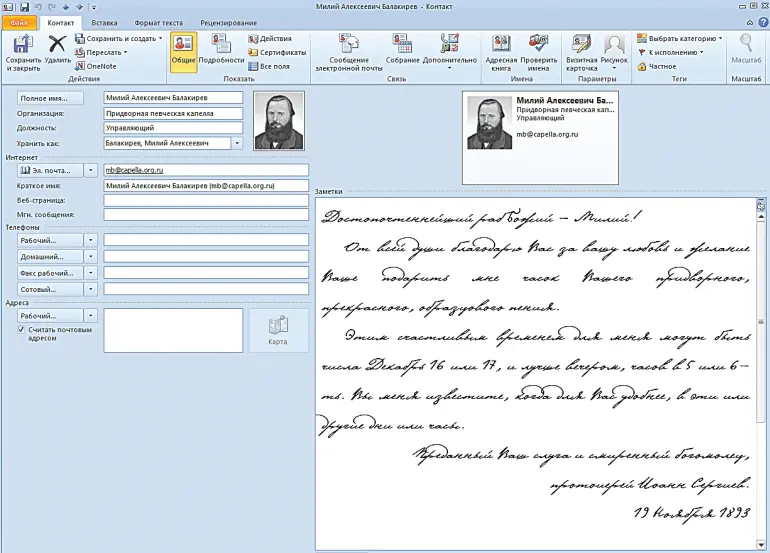 Милий Алексеевич Балакирев - Контакт
Файл Контакт Вставка Формат текста Рецензирование
Сохранить и закрыть
Удалить
Сохранить и создать
Переслать
OneNote
Действия
Общие
Подробности
Действия
Сертификаты
Все поля
Показать
Сообщение электронной почты
Собрание
Дополнительно
Связь
Адресная книга
Проверить имена
Имена
Визитная карточка
Рисунок
Параметры
Выбрать категорию
К исполнению
Частное
Теги
Масштаб
Масштаб
Полное имя... Милий Алексеевич Балакирев
Организация: Придворная певческая капелла
Должность: Управляющий
Хранить как: Балакирев, Милий Алексеевич
Интернет
Эл. почта... mb@capella.org.ru
Краткое имя: Милий Алексеевич Балакирев (mb@capella.org.ru)
Веб-страница:
Мгн. сообщения:
Телефоны
Рабочий...
Домашний...
Факс рабочий...
Сотовый...
Адреса
Рабочий...
Считать почтовым
адресом
Карта
Милий Алексеевич Ба...
Придворная певческая кап...
Управляющий
mb@capella.org.ru
Заметки
Достопочтеннейший раб Божий – Милий!
От всей души благодарю Вас за вашу любовь и желание
Ваше подарить мне часок Вашего придворного,
прекрасного, образцового пения.
Этим счастливым временем для меня могут быть
числа Декабрь 16 или 17, и лучше вечером, часов в 5 или 6–
ть. Вы меня известите, когда для Вас удобнее, в эти или
другие дни или часы.
Преданный Ваш слуга и смиренный богомолец,
протоиерей Иоанн Сергиев.
19 Ноября 1893